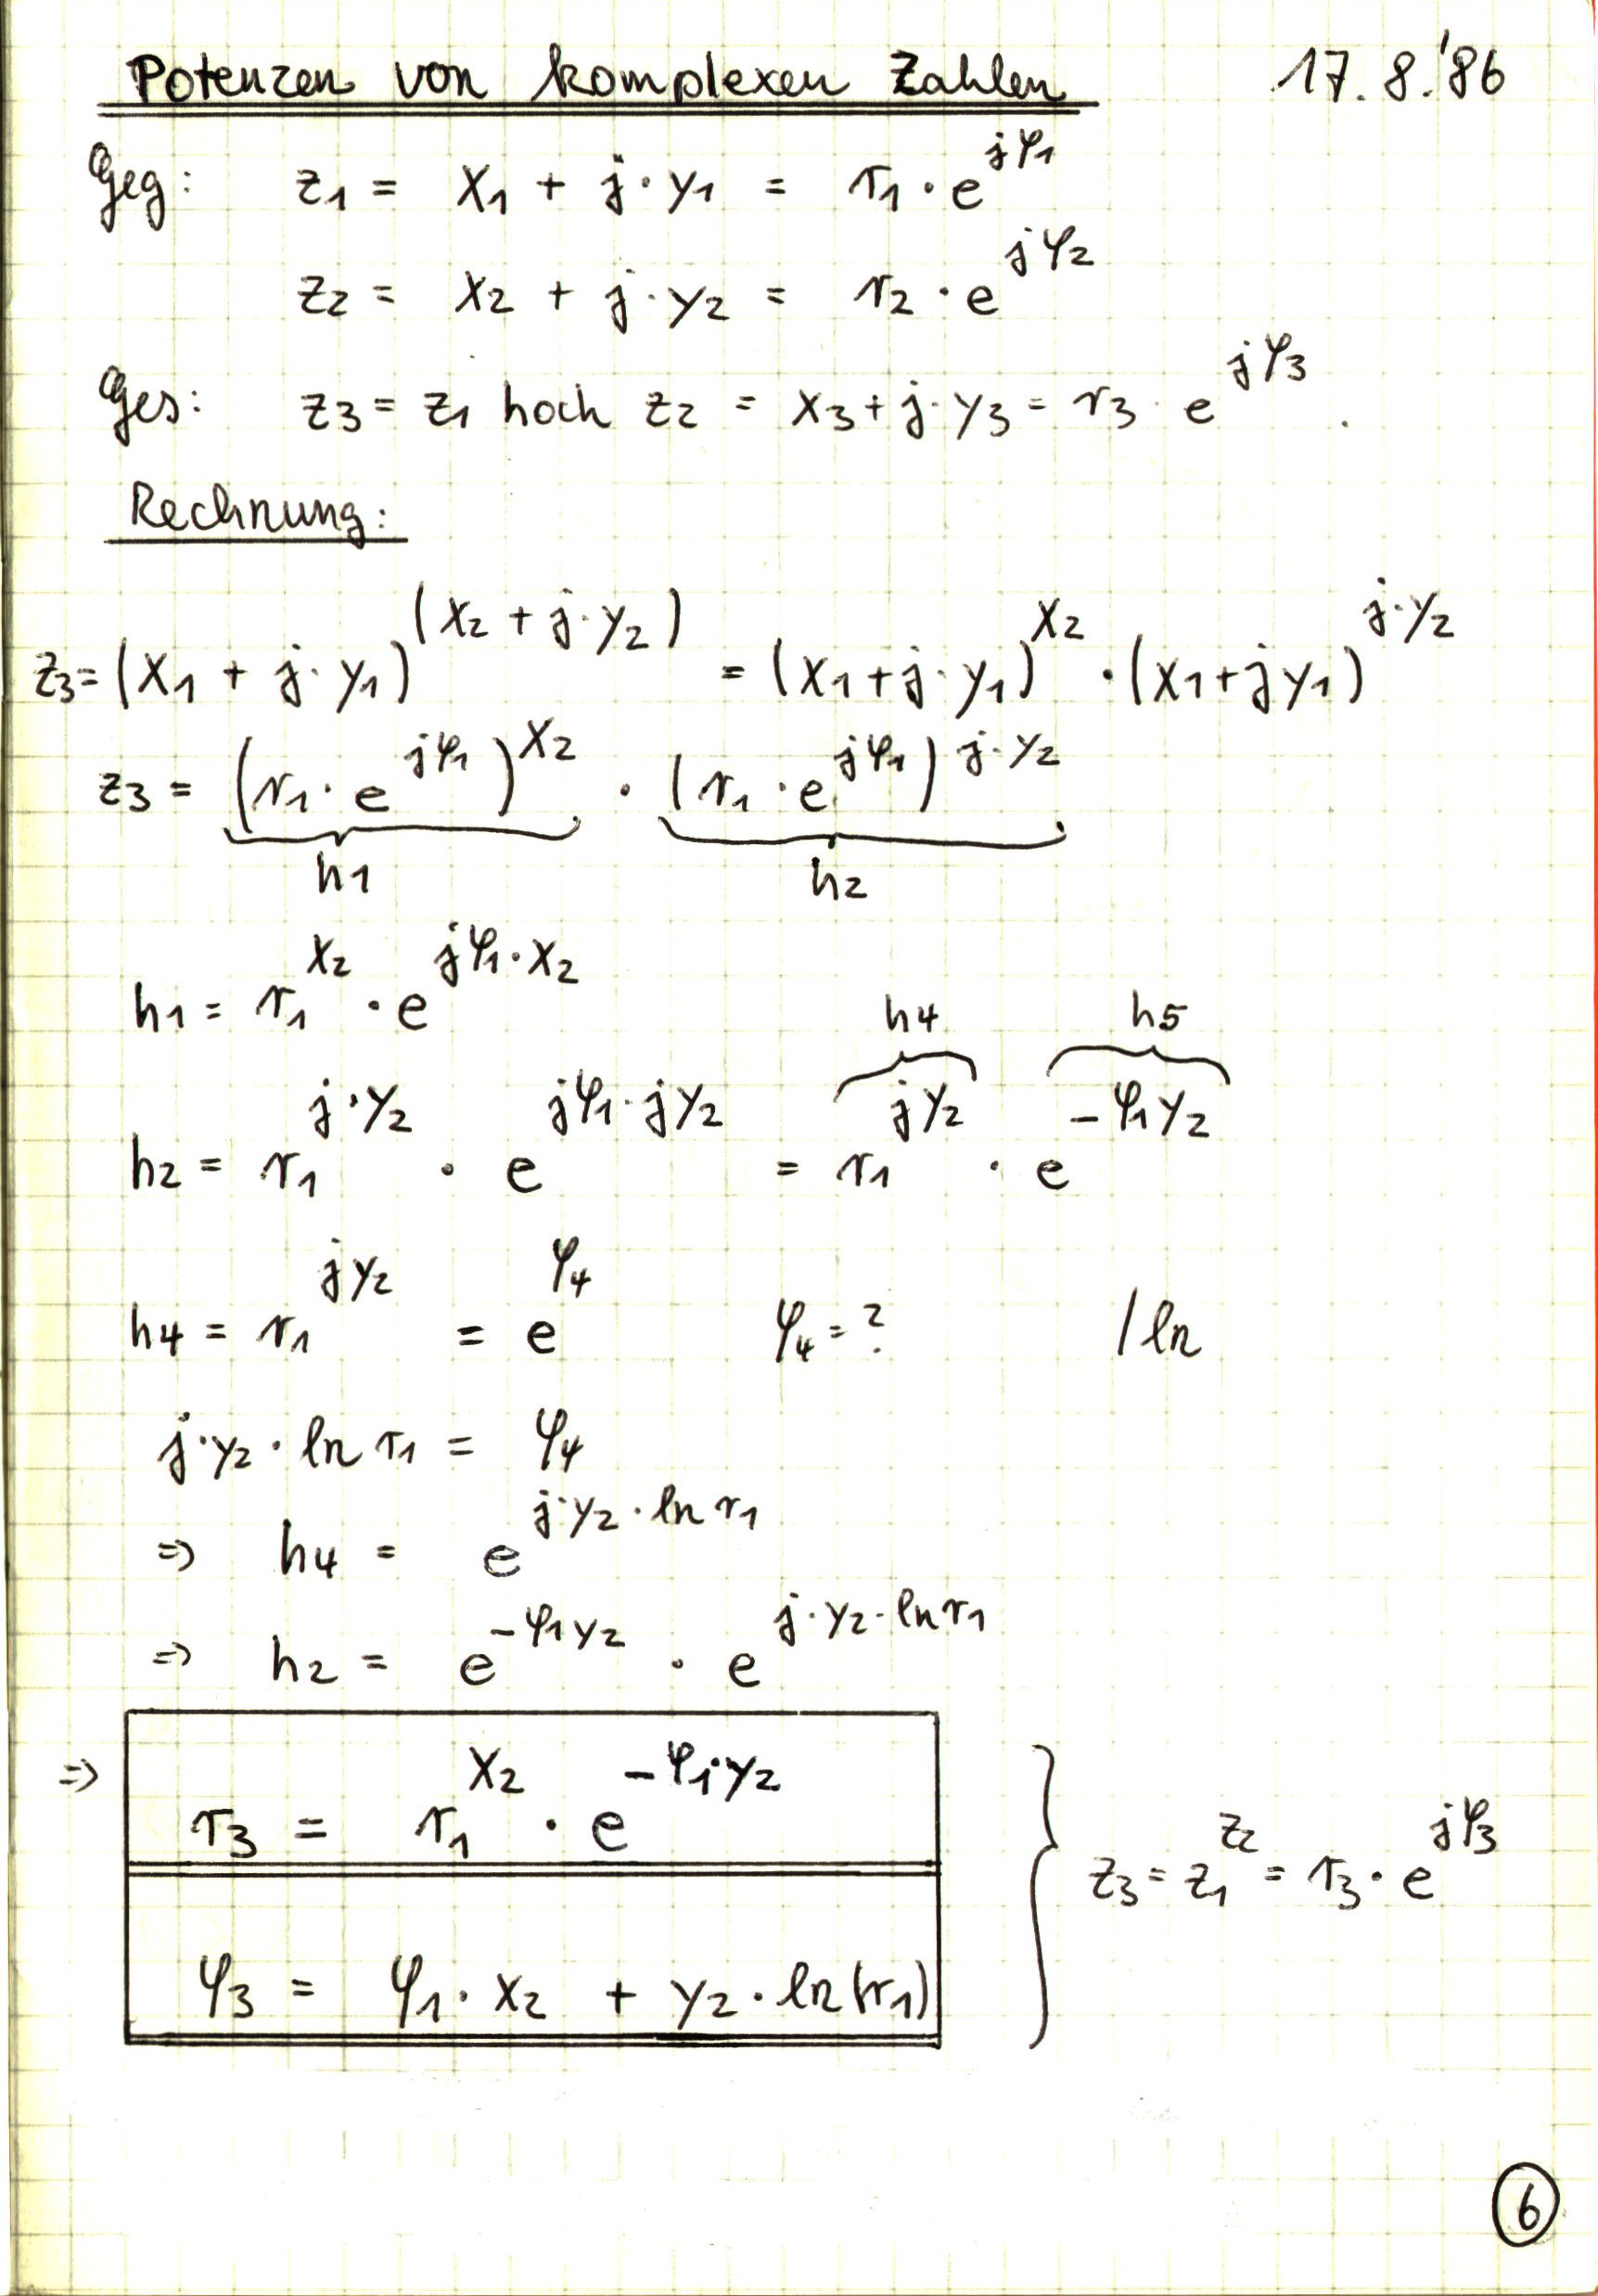 Potenzen von komplexen Zahlen 17.8.'86
Geg: z₁ = x₁ + j·y₁ = r₁·e^(jφ₁)
z₂ = x₂ + j·y₂ = r₂·e^(jφ₂)
Ges: z₃ = z₁ hoch z₂ = x₃ + j·y₃ = r₃·e^(jφ₃).
Rechnung:
z₃ = (x₁ + j·y₁)^(x₂ + j·y₂) = (x₁ + j·y₁)^x₂ · (x₁ + jy₁)^(j·y₂)
z₃ = (r₁·e^(jφ₁))^x₂ · (r₁·e^(jφ₁))^(j·y₂)
h1 h2
h1 = r₁^x₂ · e^(jφ₁·x₂)
h4 h5
h2 = r₁^(j·y₂) · e^(jφ₁·jy₂) = r₁^(jy₂) · e^(-φ₁y₂)
h4 = r₁^(jy₂) = e^φ₄ φ₄ = ? /ln
j·y₂·ln r₁ = φ₄
⇒ h4 = e^(j·y₂·ln r₁)
⇒ h2 = e^(-φ₁y₂) · e^(j·y₂·ln r₁)
⇒ r₃ = r₁^x₂ · e^(-φ₁·y₂)
z₃ = z₁^z₂ = r₃·e^(jφ₃)
φ₃ = φ₁·x₂ + y₂·ln(r₁)
6